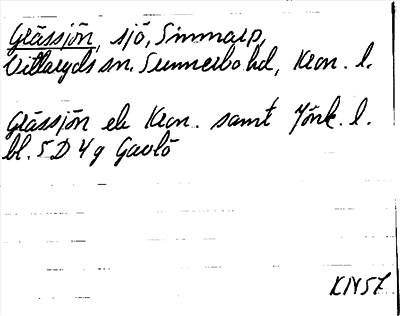 Grässjön, sjö, Simmarp,
Vittaryds sn. Sunnerbo hd, Kron. l.
Grässjön ek Kron. samt Jönk. l.
bl. 5 D 4 g Gavlö
KN57